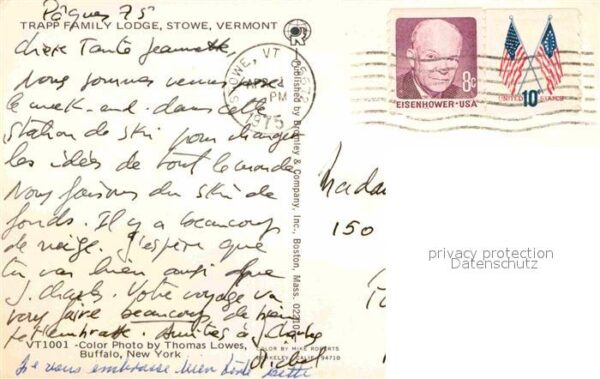 Pâques 75
TRAPP FAMILY LODGE, STOWE, VERMONT
chère Tante Jeannette,
Nous sommes venus passer
le week-end dans cette
station de ski pour changer
les idées de tout le monde
Nous faisons du ski de
fonds. Il y a beaucoup
de neige. J'espère que
tu vas bien ainsi que
J. Charles. Votre voyage va
vous faire beaucoup de bien
Je t'embrasse. Amitiés à J. Charles
Michel
VT1001 -Color Photo by Thomas Lowes,
Buffalo, New York
Je vous embrasse bien
Published by Bromley & Company, Inc., Boston, Mass.
COLOR BY MIKE ROBERTS
BERKELEY, CALIF. 94710
STOWE, VT
PM
1975
8c
EISENHOWER·USA
10c
UNITED STATES
Madam
150
privacy protection
Datenschutz